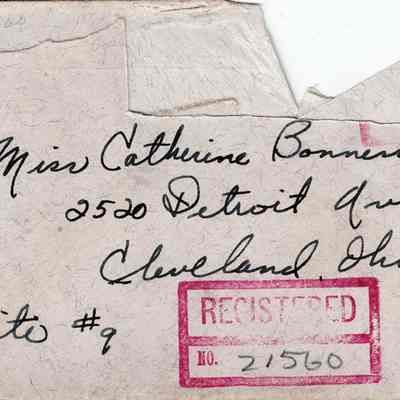 Miss Catherine Bonner
2520 Detroit Av
Cleveland, Ohi
ite #9
REGISTERED
NO. 21560